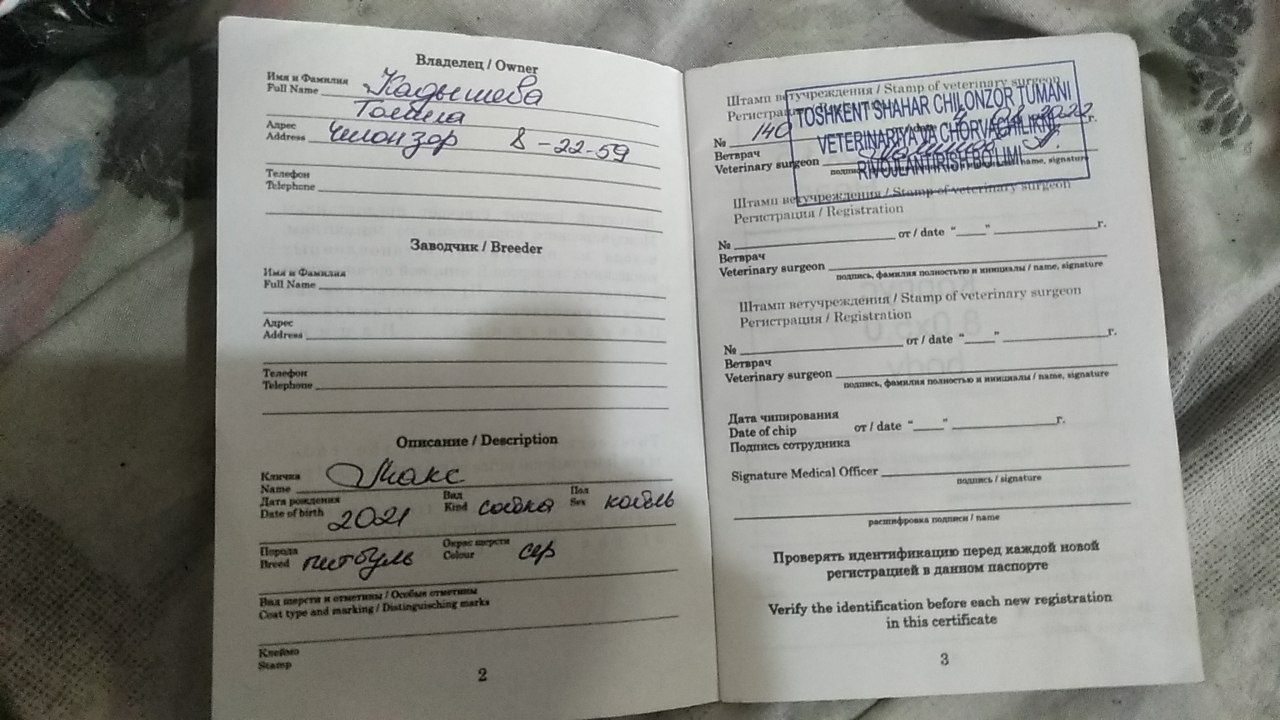 Владелец / Owner
Имя и Фамилия
Full Name Кадышева
Адрес
Address Чилонзор 8-22-59
Телефон
Telephone
Заводчик / Breeder
Имя и Фамилия
Full Name
Адрес
Address
Телефон
Telephone
Описание / Description
Кличка
Name Макс
Дата рождения Вид Пол
Date of birth 2021 Kind собака Sex кобель
Порода Окрас шерсти
Breed питбуль Colour сер
Вид шерсти и отметины / Особые отметины
Coat type and marking / Distinguisching marks
Клеймо
Stamp
2
Штамп ветучреждения / Stamp of veterinary surgeon
Регистрация
№ 140 2022 г.
Ветврач
Veterinary surgeon name, signature
TOSHKENT SHAHAR CHILONZOR TUMANI
VETERINARIYA VA CHORVACHILIKNI
RIVOJLANTIRISH BO'LIMI
Штамп ветучреждения / Stamp of veterinary surgeon
Регистрация / Registration
№ от / date “ ” г.
Ветврач
Veterinary surgeon
подпись, фамилия полностью и инициалы / name, signature
Штамп ветучреждения / Stamp of veterinary surgeon
Регистрация / Registration
№ от / date “ ” г.
Ветврач
Veterinary surgeon
подпись, фамилия полностью и инициалы / name, signature
Дата чипирования
Date of chip от / date “ ” г.
Подпись сотрудника
Signature Medical Officer
подпись / signature
расшифровка подписи / name
Проверять идентификацию перед каждой новой
регистрацией в данном паспорте
Verify the identification before each new registration
in this certificate
3